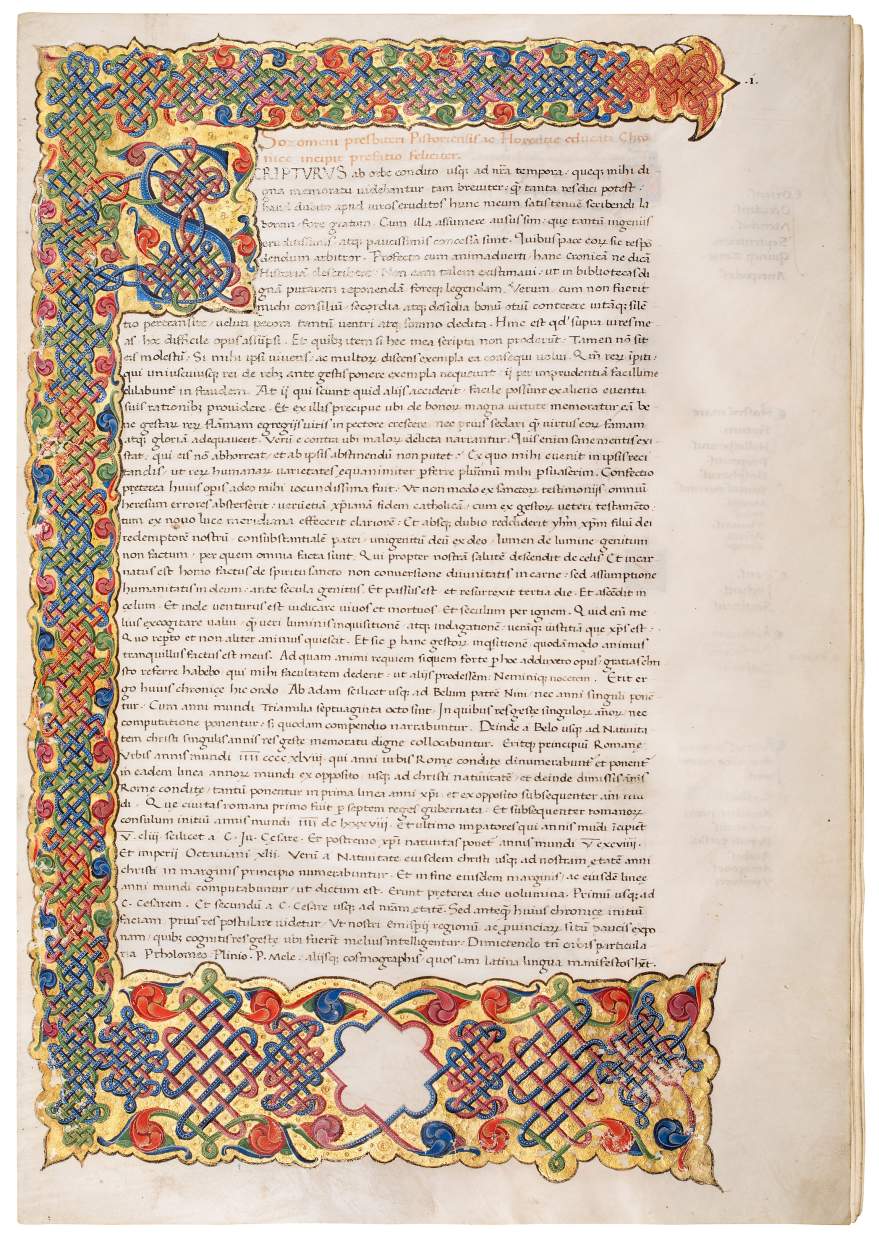 .1.
Sozomeni presbiteri Pistoriensis ac Heredtie educati Chro
nice incipit prefatio feliciter.
SCRIPTVRVS ab orbe condito usq; ad nr̄a tempora queq; mihi di
gna memoratu uidebantur tam breuiter q̄ tanta res dici potest
haud dubito apud uiros eruditos hunc meum satis tenue scribendi la
borem fore gratum. Cum illa assumere ausus sim que tantū ingenijs
eruditissimis atq; paucissimis concessa sunt. Quibus pace eorꝝ sic respō
dendum arbitror. Profecto cum animaduerti hanc cronicā ne dicā
Historiā describere. Non eam talem existimaui ut in bibliotecas di
gnā putarem reponendā foreq; legendam. Verum cum non fuerit
michi consiliū secordia atq; desidia bonū otiū conterere uitāq; sile
tio pertransire ueluti pecora tantū uentri atq; somno dedita. Hinc est qd̄ supra uires me
as hoc difficile opus assūpsi. Et quibz item si hec mea scripta non proderūt. Tamen nō sit
eis molestū. Si mihi ipsi uiuens ac multorꝝ discens exempla ea consequi uolui. Q m̄ rerꝝ īpiti
qui uniuscuiusq; rei de rebz ante gestis ponere exempla nequeunt ij per imprudentiā facillime
dilabunt̄ in fraudem. At ij qui sciunt quid alijs acciderit facile possunt ex alieno euentu
suis rationibz prouidere. Et ex illis precipue ubi de bonorꝝ magna uirtute memoratur cā be
ne gestarꝝ rerꝝ flāmam egregijs uiris in pectore crescere nec prius sedari q̄ uirtus eorꝝ famam
atq; gloriā adequauerit. Verū e contra ubi malorꝝ delicta narrantur. Quis enim sane mentis exi
stat qui eis nō abhorreat et ab ipsis abstinendū non putet. Ex quo mihi euenit in ipsis reci
tandis ut rerꝝ humanarꝝ uarietates equanimiter p̄ferre plurimū mihi p̄suaserim. Confectio
preterea huius opis adeo mihi iocundissima fuit. Vt non modo ex sanctorꝝ testimonijs omniū
heresum errores absterserit uerū etiā xp̄ianā fidem catholicā cum ex gestorꝝ ueteri testamēto
tum ex nouo luce meridiana effecerit clariorē. Et absq; dubio reddiderit yhm̄ xp̄m filiū dei
redemptorē nostrū consubstantialē patri unigenitū deū ex deo lumen de lumine genitum
non factum per quem omnia facta sunt. Qui propter nostrā salutē descendit de celis. Et incar
natus est homo factus de spiritu sancto non conuersione diuinitatis in carne sed assumptione
humanitatis in deum ante secula genitus. Et passus est et resurrexit tertia die. Et ascēdit in
celum. Et inde uenturus est iudicare uiuos et mortuos. Et seculum per ignem. Quid em̄ me
lius excogitare ualui q̄ ueri luminis inquisitionē atq; indagationē uerāq; iustitiā que xp̄s est.
Quo repto et non aliter animus quiescat. Et sic p̄ hanc gestorꝝ inq̄sitionē quodā modo animus
tranquillus factus est meus. Ad quam animi requiem si quem forte p̄ hoc adduxero opus gratias chri
sto referre habebo qui mihi facultatem dederit ut alijs prodessem. Neminiq; nocerem. Erit er
go huius chronice hic ordo. Ab adam scilicet usq; ad Belum patrē Nini nec anni singuli pone
tur. Cum anni mundi Triamilia septuaginta octo sint. In quibus res geste singulorꝝ annorꝝ nec
computatione ponentur si quodam compendio narrabuntur. Deinde a Belo usq; ad Natiuita
tem christi singulis annis res geste memoratu digne collocabuntur. Eritq; principiū Romane
Vrbis annis mundi īīīī cccc xlviij. qui anni urbis Rome condite dinumerabunt̄ et ponent̄
in eadem linea annorꝝ mundi ex opposito usq; ad christi natiuitatē et deinde dimissis annis
Rome condite tantū ponentur in prima linea anni xp̄i et ex opposito subsequenter ani mū
di. Que ciuitas romana primo fuit p̄ septem reges gubernata. Et subsequenter romanorꝝ
consulum initiū annis mundi īīīī dc lxxxviij. Et ultimo imp̄atores qui annis mūdi īcipiēt
V. cliij scilicet a C. Iu. Cesare. Et postremo xp̄i natiuitas ponet̄ annis mundi V. cxcviiij.
Et imperij Octauiani xlij. Verū a Natiuitate eiusdem christi usq; ad nostram etatē anni
christi in marginis principio numerabuntur. Et in fine eiusdem marginis ac eiusdē linee
anni mundi computabuntur ut dictum est. Erunt preterea duo uolumina. Primū usq; ad
C. Cesarem. Et secundū a C. Cesare usq; ad nr̄am etatē. Sed anteq̄ huius chronice initiū
faciam prius res postulare uidetur. Vt nostri Emisperij regionū ac prouinciarꝝ sitū paucis expo
nam quibz cognitis res geste ubi fuerit melius intelligentur. Dimictendo tn̄ orbis particula
ria Ptholomeo Plinio. P. Mele alijsq; cosmographis quos iam latina lingua manifestos h̄et.